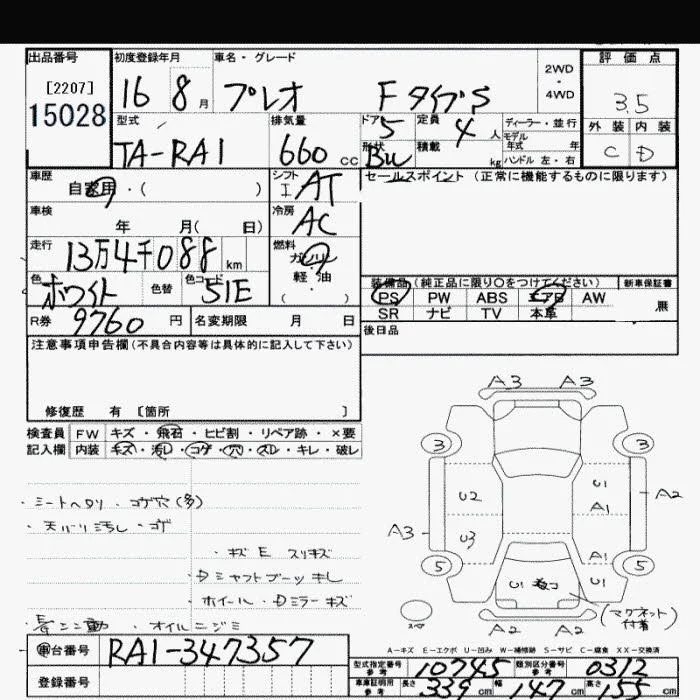 出品番号 初度登録年月 車名・グレード 2WD・4WD 評価点
[2207] 15028 16 8月 プレオ FタイプS 3.5
型式 排気量 ドア 5 定員 4人 ディーラー・並行 外装 内装
TA-RA1 660cc 形状 BW 積載 kg モデル年式 年 ハンドル 左・右 C D
車歴 自家用・( ) シフト I AT セールスポイント(正常に機能するものに限ります)
車検 年 月( 日) 冷房 AC
走行 13万4千088km 燃料 ガソリン 軽油 ( )
色 ホワイト 色替 色コード 51E 装備品(純正品に限り○をつけてください) 新車保証書
R券 9760円 名変期限 月 日 PS PW ABS エアB AW 無
SR ナビ TV 本革
注意事項申告欄(不具合内容等は具体的に記入して下さい) 後日品
修復歴 有 [箇所 ]
検査員 FW キズ・飛石・ヒビ割・リペア跡・×要
記入欄 内装 キズ・汚レ・コゲ・穴・スレ・キレ・破レ
・シートヘタリ・コゲ穴(多)
・天バリ汚レ・コゲ
・キズ E スリキズ
・Dシャフトブーツキレ
・ホイール・Dミラーキズ
動・オイルニジミ
A3 A3
3 3
U2 U1 A1 A2
A3 U3 A1
5 U1 U1 5
スペア A2 A2 (マグネット付着)
A-キズ E-エクボ U-凹み W-補修跡 S-サビ C-腐食 XX-交換済
車台番号 RA1-347357
型式指定番号 参考 10745 類別区分番号 参考 0312
登録番号 車庫証明用 参考 長さ 339cm 幅 147cm 高さ 155cm